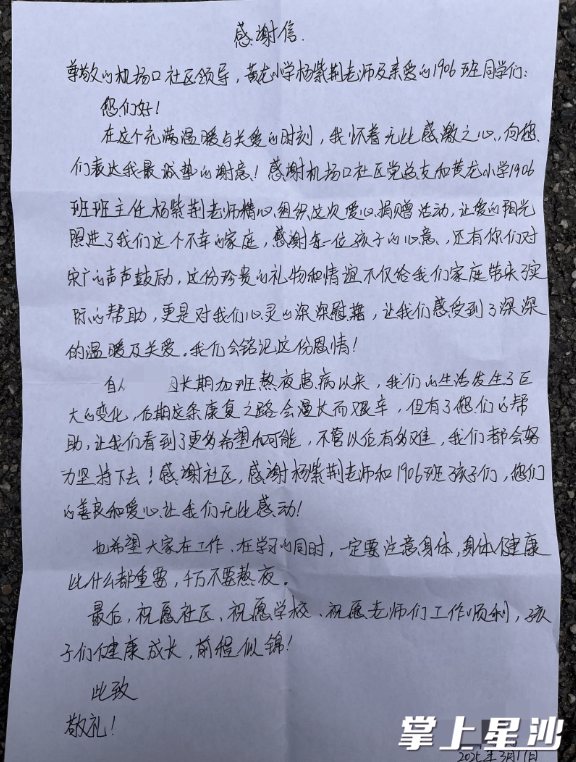 感谢信
尊敬的机场口社区领导，黄龙小学杨紫荆老师及亲爱的1906班同学们：
您们好！
在这个充满温暖与关爱的时刻，我怀着无比感激之心，向您
们表达我最诚挚的谢意！感谢机场口社区党总支和黄龙小学1906
班班主任杨紫荆老师精心组织这次爱心捐赠活动，让爱的阳光
照进了我们这个不幸的家庭，感谢每一位孩子的心意，还有你们对
宋广的声声鼓励，这份珍贵的礼物和情谊不仅给我们家庭带来了实
际的帮助，更是对我们心灵的深深慰藉，让我们感受到了深深
的温暖及关爱。我们会铭记这份恩情！
自从 因长期加班熬夜患病以来，我们的生活发生了巨
大的变化，后期这条康复之路会漫长而艰辛，但有了您们的帮
助，让我们看到了更多希望和可能，不管以后有多难，我们都会努
力坚持下去！感谢社区，感谢杨紫荆老师和1906班孩子们，您们
的善良和爱心让我们无比感动！
也希望大家在工作、在学习的同时，一定要注意身体，身体健康
比什么都重要，千万不要熬夜。
最后，祝愿社区、祝愿学校、祝愿老师们工作顺利，孩
子们健康成长，前程似锦！
此致
敬礼！
2025年3月11日
掌上星沙